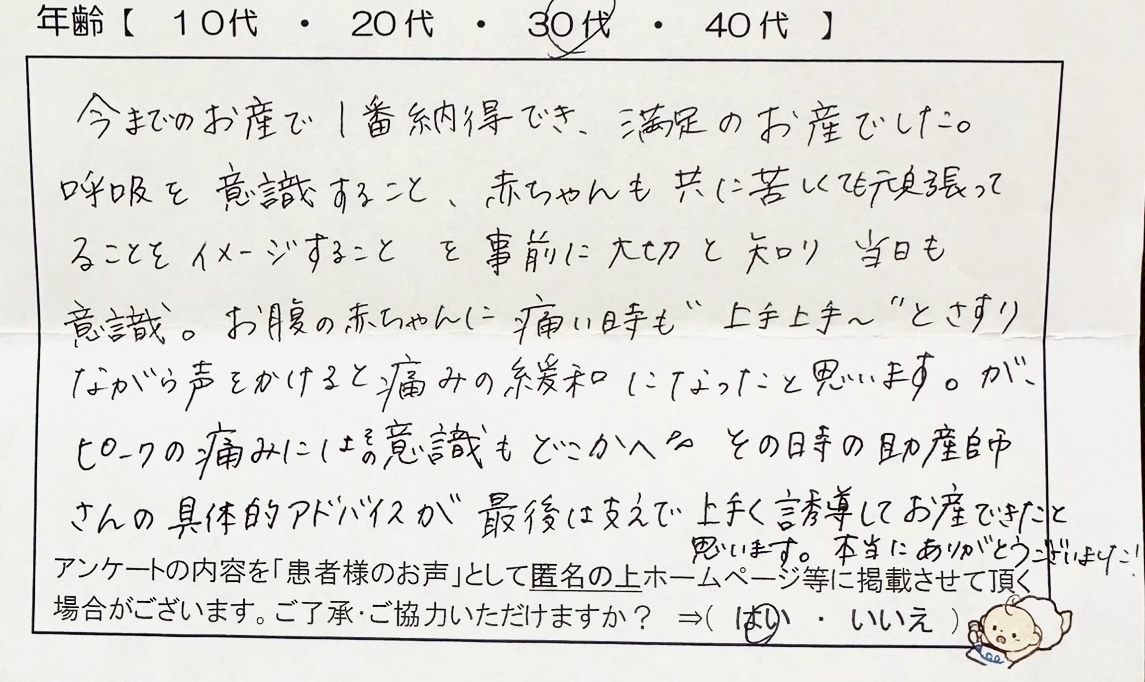 年齢【 10代 ・ 20代 ・ 30代 ・ 40代 】
今までのお産で1番納得でき、満足のお産でした。
呼吸を意識すること、赤ちゃんも共に苦しくても頑張って
ることをイメージすること を事前に大切と知り 当日も
意識。お腹の赤ちゃんに痛い時も“上手上手〜”とさすり
ながら声をかけると痛みの緩和になったと思います。が、
ピークの痛みにはその意識もどこかへ〜 その時の助産師
さんの具体的アドバイスが最後は支えで上手く誘導してお産できたと
思います。本当にありがとうございました!
アンケートの内容を「患者様のお声」として匿名の上ホームページ等に掲載させて頂く
場合がございます。ご了承・ご協力いただけますか? ⇒( はい ・ いいえ )